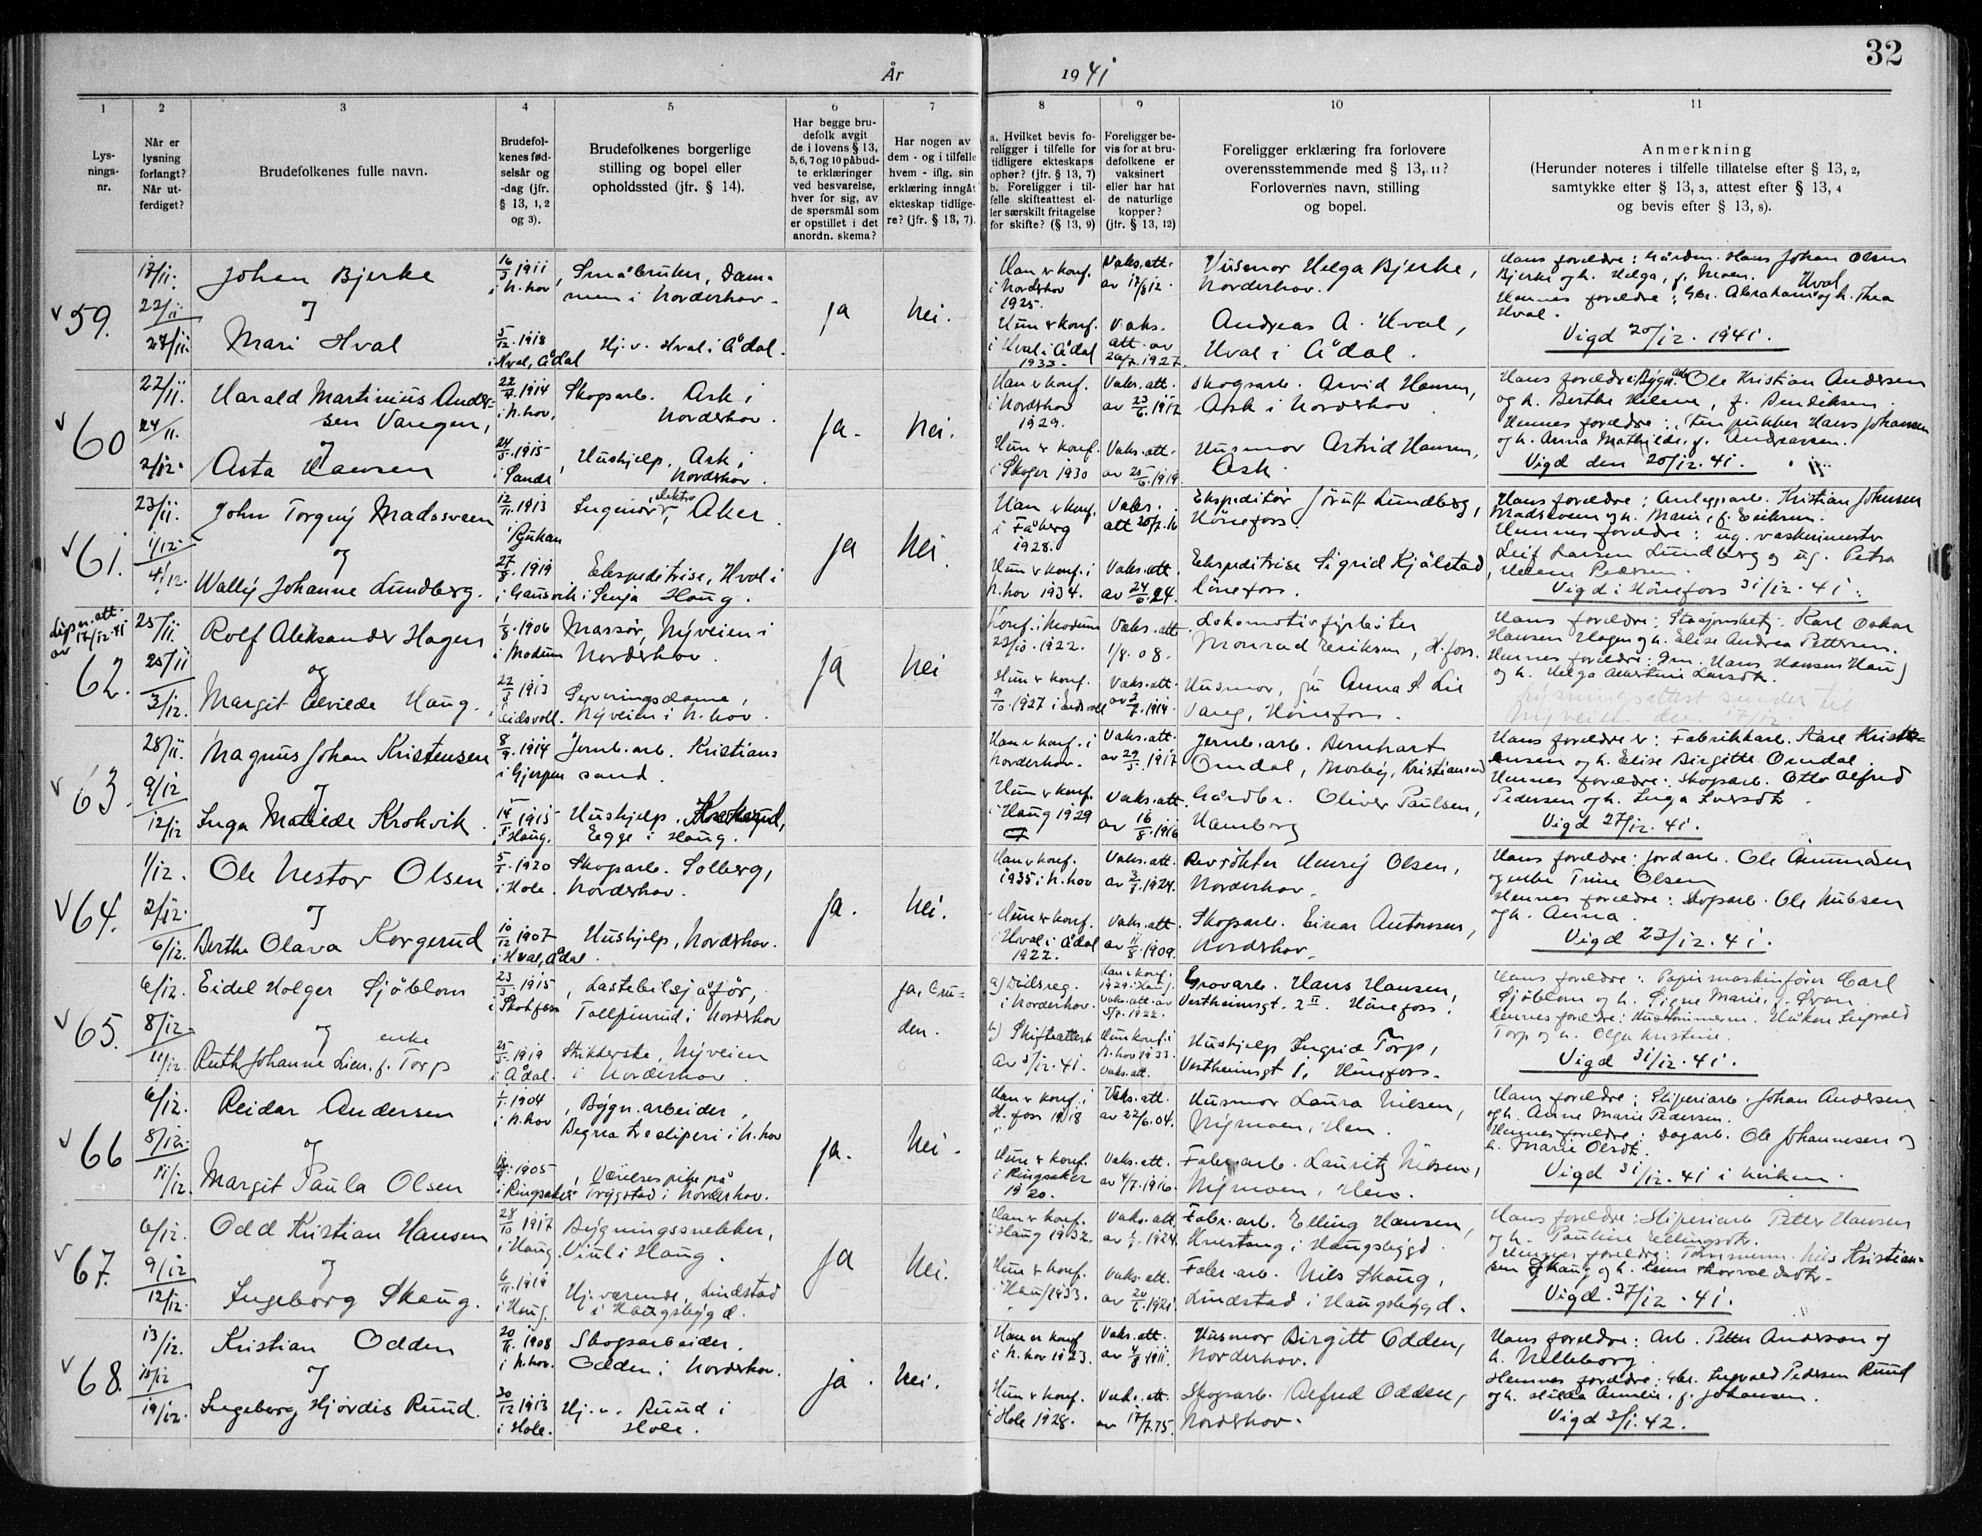 32
År 1941
1 2 3 4 5 6 7 8 9 10 11
Lys-
nings-
nr.
Når er
lysning
forlangt?
Når ut-
ferdiget?
Brudefolkenes fulle navn.
Brudefol-
kenes fød-
selsår og
-dag (jfr.
§ 13, 1, 2
og 3).
Brudefolkenes borgerlige
stilling og bopel eller
opholdssted (jfr. § 14).
Har begge bru-
defolk avgit
de i lovens § 13,
5, 6, 7 og 10 påbud-
te erklæringer
ved besvarelse,
hver for sig, av
de spørsmål som
er opstillet i det
anordn. skema?
Har nogen av
dem - og i tilfelle
hvem - iflg. sin
erklæring inngått
ekteskap tidlige-
re? (jfr. § 13, 7).
a. Hvilket bevis fo-
religger i tilfelle for
tidligere ekteskaps
ophør? (jfr. § 13, 7)
b. Foreligger i til-
felle skifteattest el-
ler særskilt fritagelse
for skifte? (§ 13, 9)
Foreligger be-
vis for at bru-
defolkene er
vaksinert
eller har hat
de naturlige
kopper?
(jfr. § 13, 12)
Foreligger erklæring fra forlovere
overensstemmende med § 13, 11?
Forlovernes navn, stilling
og bopel.
Anmerkning
(Herunder noteres i tilfelle tillatelse efter § 13, 2,
samtykke efter § 13, 3, attest efter § 13, 4
og bevis efter § 13, 8).
v 59.
17/11.
22/11
27/11.
Johan Bjerke
og
Mari Hval
16/3 1911
i N.hov
5/12. 1918
i Hval, Ådal
Småbruker, Dam-
men i Norderhov.
Hj.v. Hval i Ådal.
Ja
Nei.
Han er konf.
i Norderhov
1925.
Hun er konf.
i Hval i Ådal
1933.
Vaks. att.
av 17/8 12.
Vaks.
att. av
20/7. 1927.
Husmor Helga Bjerke,
Norderhov.
Andreas A. Hval,
Hval i Ådal.
Hans foreldre: Gårdm. Hans Johan Olsen
Bjerke og h. Helga, f. Moen.
Hennes foreldre: Gbr. Abraham Hval og h. Thea
Hval.
Vigd 20/12. 1941.
v 60
22/11.
24/11.
2/12.
Harald Martinius Ander-
sen Vangen,
og
Asta Hansen
22/7. 1914
i N.hov.
24/5. 1915
i Sande
Skogsarb. Ask i
Norderhov.
Hushjelp, Ask i
Norderhov.
Ja.
Nei.
Han er konf.
i Norderhov
1929.
Hun er konf.
i Skoger 1930
Vaks. att.
av 23/6. 1917
Vaks. att.
av 25/6. 1919.
Skogsarb. Arvid Hansen,
Ask i Norderhov
Husmor Astrid Hansen,
Ask.
Hans foreldre: Ole Kristian Andersen
og h. Berthe Helene, f. Bendiksen.
Hennes foreldre: Hans Johansen
og h. Anna Mathilde, f. Andreassen.
Vigd den 20/12. 41.
v 61.
23/11.
1/12.
4/12.
John Torguy Madssveen
og
Wally Johanne Lundberg.
12/11. 1913
i Rjukan
27/8. 1919
i Gausvik i Senja
Ingeniør, elektro, Aker.
Ekspeditrise, Hval i
Haug.
Ja
Nei.
Han er konf.
i Fåberg
1928.
Hun er konf. i
N.hov 1934.
Vaks.
att 20/7. 16
Vaks. att.
av 24/6. 24.
Ekspeditør Lundberg,
Hönefoss.
Ekspeditrise Sigrid Kjälstad,
Hönefoss.
Hans foreldre: Anleggsarb. Kristian Johnsen
Madssveen og h. Marie, f. Eriksen.
Hennes foreldre: ug. vaskerimester
Leif Larsen Lundberg og ug. Petra
Helene Pedersen.
Vigd i Hönefoss 31/12. 41.
av 17/12.41
62.
25/11.
25/11
3/12.
Rolf Aleksander Hagen
og
Margit Elvilde Haug.
1/8. 1906
i Modum
22/3 1913
i Eidsvoll.
Massör, Nyveien i
Norderhov.
Serveringsdame,
Nyveien i N.hov.
Ja
Nei
Konf. i Modum
23/10. 1922.
Hun er konf.
9/10. 1927 i Eidsvoll
Vaks. att
1/8. 08.
Vaks. att.
av 2/7. 1914.
Lokomotivfyrböter
Monrad Eriksen, H.foss.
Husmor, fru Anna S. Lie
Vang, Hönefoss.
Hans foreldre: Stasjonsbetj. Karl Oskar
Hansen Hagen og h. Elise Andrea Pettersen.
Hennes foreldre: Hans Hansen Haug
og h. Helga Albertine Larsdt.
Lysningsattest sendt til
Nyveien den 17/12.
v 63.
28/11.
9/12
12/12
Magnus Johan Kristensen
og
Inga Matilde Krokvik.
8/9. 1914
i Gjerpen
14/5. 1915
i Haug.
Jernb.arb. Kristian-
sand.
Hushjelp,
Egge i Haug.
Han er konf. i
Norderhov.
Hun er konf.
i Haug 1929
Vaks. att.
av 29/5. 1917
Vaks. att.
av 16/8. 1916
Jernb.arb. Bernhart
Omdal, Mosby, Kristiansand
Gårdbr. Oliver Paulsen,
Hamborg
Hans foreldre er: Fabrikkarb. Karl Krist-
ensen og h. Elise Birgitte Omdal.
Hennes foreldre: Skogsarb. Otto Alfred
Pedersen og h. Inga Iversdt.
Vigd 27/12. 41.
v 64.
1/12.
2/12.
6/12.
Ole Nestor Olsen
og
Berthe Olava Korgerud
5/1. 1920
i Hole.
10/12 1907
i Hval, Ådal
Skogsarb. Solberg,
Norderhov.
Hushjelp, Norderhov.
Ja.
Nei.
Han er konf.
1935 i N.hov
Hun er konf.
i Hval i Ådal
1922.
Vaks. att.
av 3/7. 1924.
Vaks. att.
av 11/8. 1909.
Revrökter Henry Olsen,
Norderhov.
Skogsarb. Einar Antonsen,
Norderhov.
Hans foreldre: Jordarb. Ole Amundsen
og enke Trine Olsen
Hennes foreldre: Skogsarb. Ole Nubsen
og h. Anna.
Vigd 23/12. 41.
v 65.
6/12.
8/12
11/12.
Eidel Holger Sjöblom
og
enke
Ruth Johanne Lien, f. Torp
23/3. 1915
25/5. 1919
i Ådal.
Lastebilsjåför,
Tollpinrud i Norderhov
Strikkerske, Nyveien
i Norderhov.
ja, bru-
den.
a) Dödsreg.
i Norderhov.
b) Skifteattest
av 5/12. 41.
Han er konf.
1929 i Haug.
Vaks. att. av
5/7. 1922.
Hun konf. i
N.hov 1933.
Vaks. att.
Grovarb. Hans Hansen,
Vestheimsgt. 2 II. Hönefoss.
Hushjelp Ingrid Torp,
Vestheimsgt 1, Hönefoss.
Hans foreldre: Papirmaskinförer Carl
Sjöblom og h. Signe Marie, f. Svan.
Hennes foreldre: Håkon Ingvald
Torp og h. Olga Kristine.
Vigd 31/12. 41.
v 66
6/12.
8/12.
11/12.
Reidar Andersen
og
Margit Paula Olsen
1/1. 1904
i N.hov
1905
i Ringsaker
Bygn. arbeider,
Begna tresliperi i N.hov
Værelsespike på
Trygstad i Norderhov.
Ja.
Nei.
Han er konf. i
H.foss 1918
Hun er konf.
i Ringsaker
1920.
Vaks. att.
av 22/6. 04.
Vaks. att.
av 4/7. 1916.
Husmor Laura Nilsen,
Nymoen, Hen.
Fabr.arb. Lauritz Nilsen,
Nymoen, Hen.
Hans foreldre: Sliperiarb. Johan Andersen
og h. Anne Marie Pedersen.
Hennes foreldre: Dagarb. Ole Johannesen og
h. Marie Olsdt.
Vigd 31/12. 41 i kirken.
v 67.
6/12.
9/12
12/12.
Odd Kristian Hansen
og
Ingeborg Skaug.
28/10 1917
i Haug
6/11. 1919
i Haug.
Bygningssnekker,
Viul i Haug.
Hj.værende, Lindstad
i Haugsbygd.
Ja
Nei.
Han er konf.
i Haug 1932.
Hun er konf.
i Haug 1933.
Vaks. att.
av 1/7. 1924.
Vaks. att.
av 20/6. 1921
Fabr.arb. Elling Hansen,
Knestang i Haugsbygd.
Fabr.arb. Nils Skaug,
Lindstad i Haugsbygd.
Hans foreldre: Sliperiarb Petter Hansen
og h. Pauline Ellingsdt.
Hennes foreldre: Tömmerm. Nils Kristian-
sen Skaug og h. Thorvaldsdt.
Vigd. 27/12. 41.
v 68.
13/12.
15/12
19/12.
Kristian Odden
og
Ingeborg Hjördis Ruud.
20/11. 1908
i N.hov.
30/12 1913
i Hole.
Skogsarbeider.
Odden i Norderhov.
Hj.v. Ruud i
Hole.
ja.
Nei.
Han er konf
i N.hov 1923.
Hun er konf.
i Hole 1928.
Vaks. att.
av 4/8. 1911.
Vaks. att.
av 17/7. 15.
Husmor Birgitt Odden,
Norderhov.
Skogsarb. Alfred Odden,
Norderhov.
Hans foreldre: Arb. Petter Anderson og
h. Nelleborg.
Hennes foreldre: Gbr. Ingvald Pedersen Ruud
og h. Hilda Amelie, f. Johansen.
Vigd 3/1. 42.